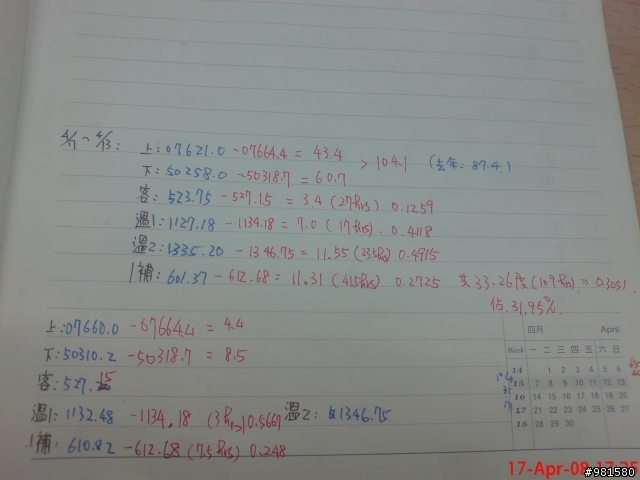 4/1~4/13: 上: 07621.0 -07664.4 = 43.4
> 104.1 (去年: 87.4.)
下: 50258.0 -50318.7 = 60.7
客: 523.75 -527.15 = 3.4 (27hrs) 0.1259
溫1: 1127.18 - 1134.18 = 7.0 (17hrs). 0.4118
溫2: 1335.20 - 1346.75 = 11.55 (23.5hrs) 0.4915
補: 601.37 -612.68 = 11.31 (41.5hrs) 0.2725 共33.26度(109hrs) = 0.3051.
佔31.95%.
上: 07660.0 -07664.4 = 4.4
下: 50310.2 -50318.7 = 8.5
客: 527.15
溫1: 1132.48 -1134.18 (3hrs) 0.5667 溫2: 1346.75
補: 610.82 -612.68 (7.5hrs) 0.248
四月 April
Week 一 二 三 四 五 六 日
14 1 2 3 4 5 6
15 7 8 9 10 11 12 13
16 14 15 16 17 18 19 20
17 21 22 23 24 25 26 27
18 28 29 30
17-Apr-08 17:25
#981580